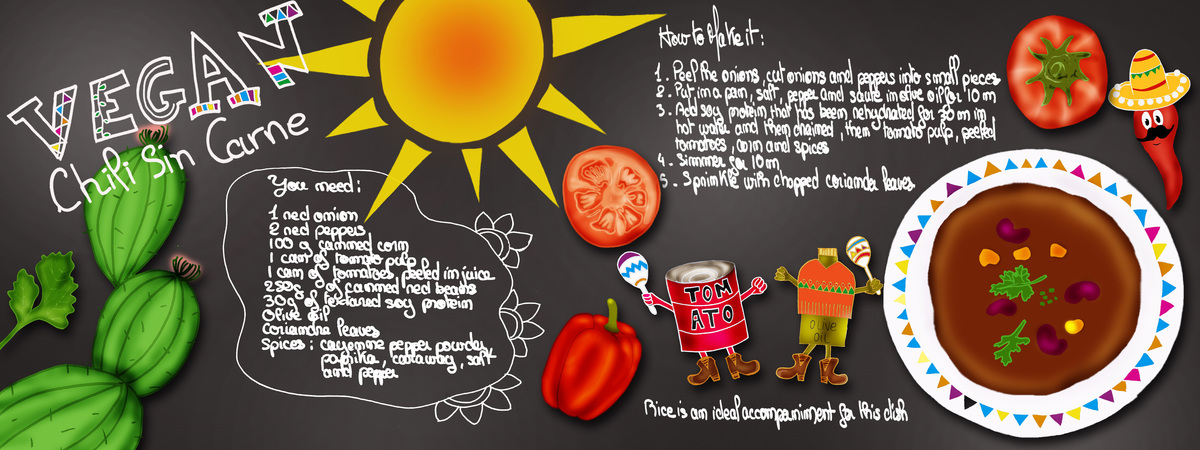 VEGAN
Chili Sin Carne
You need:
1 red onion
2 red peppers
100 g canned corn
1 can of tomato pulp
1 can of tomatoes, peeled in juice
250g of canned red beans
30g of textured soy protein
Olive oil
Coriandre leaves
Spices: cayenne pepper powder,
paprika, caraway, salt
and pepper
How to Make it:
1. Peel the onions, cut onions and peppers into small pieces
2. Put in a pan, salt, pepper and saute in olive oil for 10 m
3. Add soy protein that has been rehydrated for 30 m in
hot water and then drained, then tomato pulp, peeled
tomatoes, corn and spices
4. Simmer for 10 m
5. Sprinkle with chopped coriander leaves
TOM
ATO
OLIVE
OIL
Rice is an ideal accompaniment for this dish